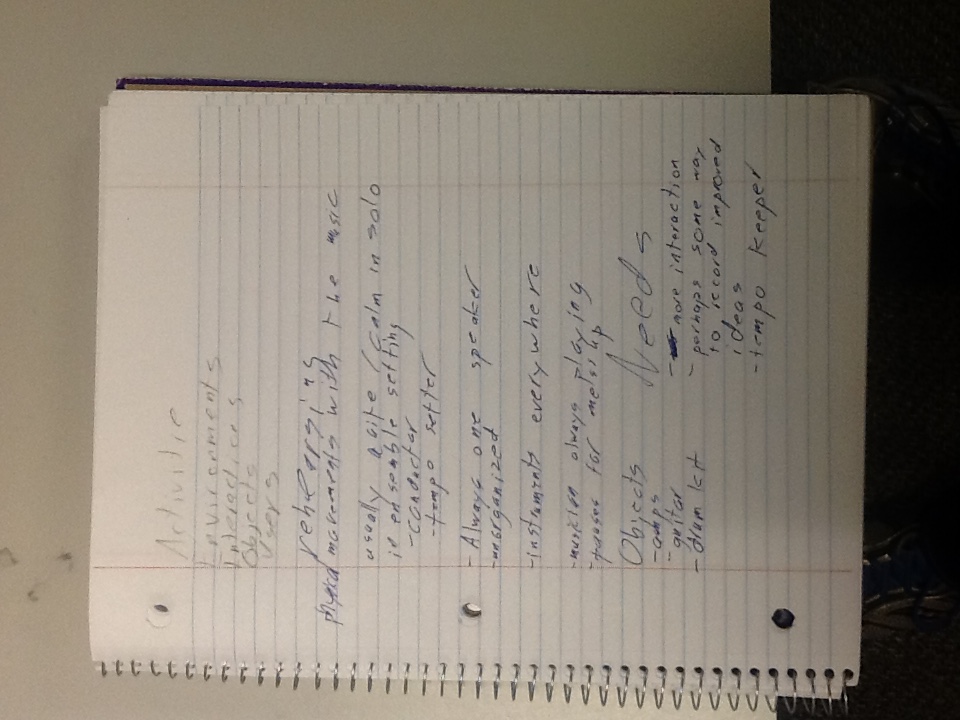 Activitie
Environments
Interactions
Objects
Users
rehearsing
physical movements with the music
usually quite / calm in solo
in ensemble setting
- conductor
- tempo setter
- Always one speaker
- unorganized
- instruments everywhere
- musician always playing
- pauses for mess up
Objects
- amps
- guitar
- drum kit
Needs
- more interaction
- perhaps some way
to record improved
ideas
- tempo keeper